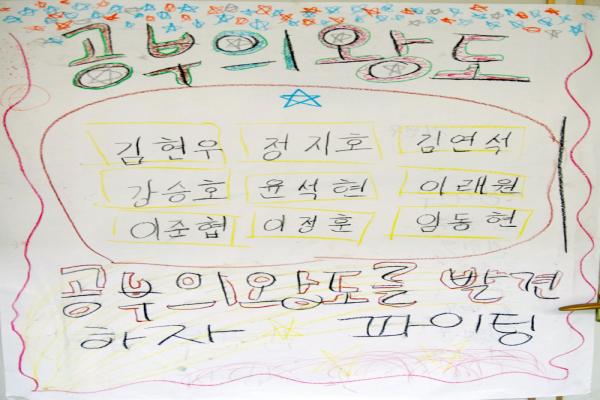 공부의 왕도
김현우 정지호 김연석
강승호 윤석현 이래원
이준협 이정훈 임동현
공부의 왕도를 발견
하자 파이팅